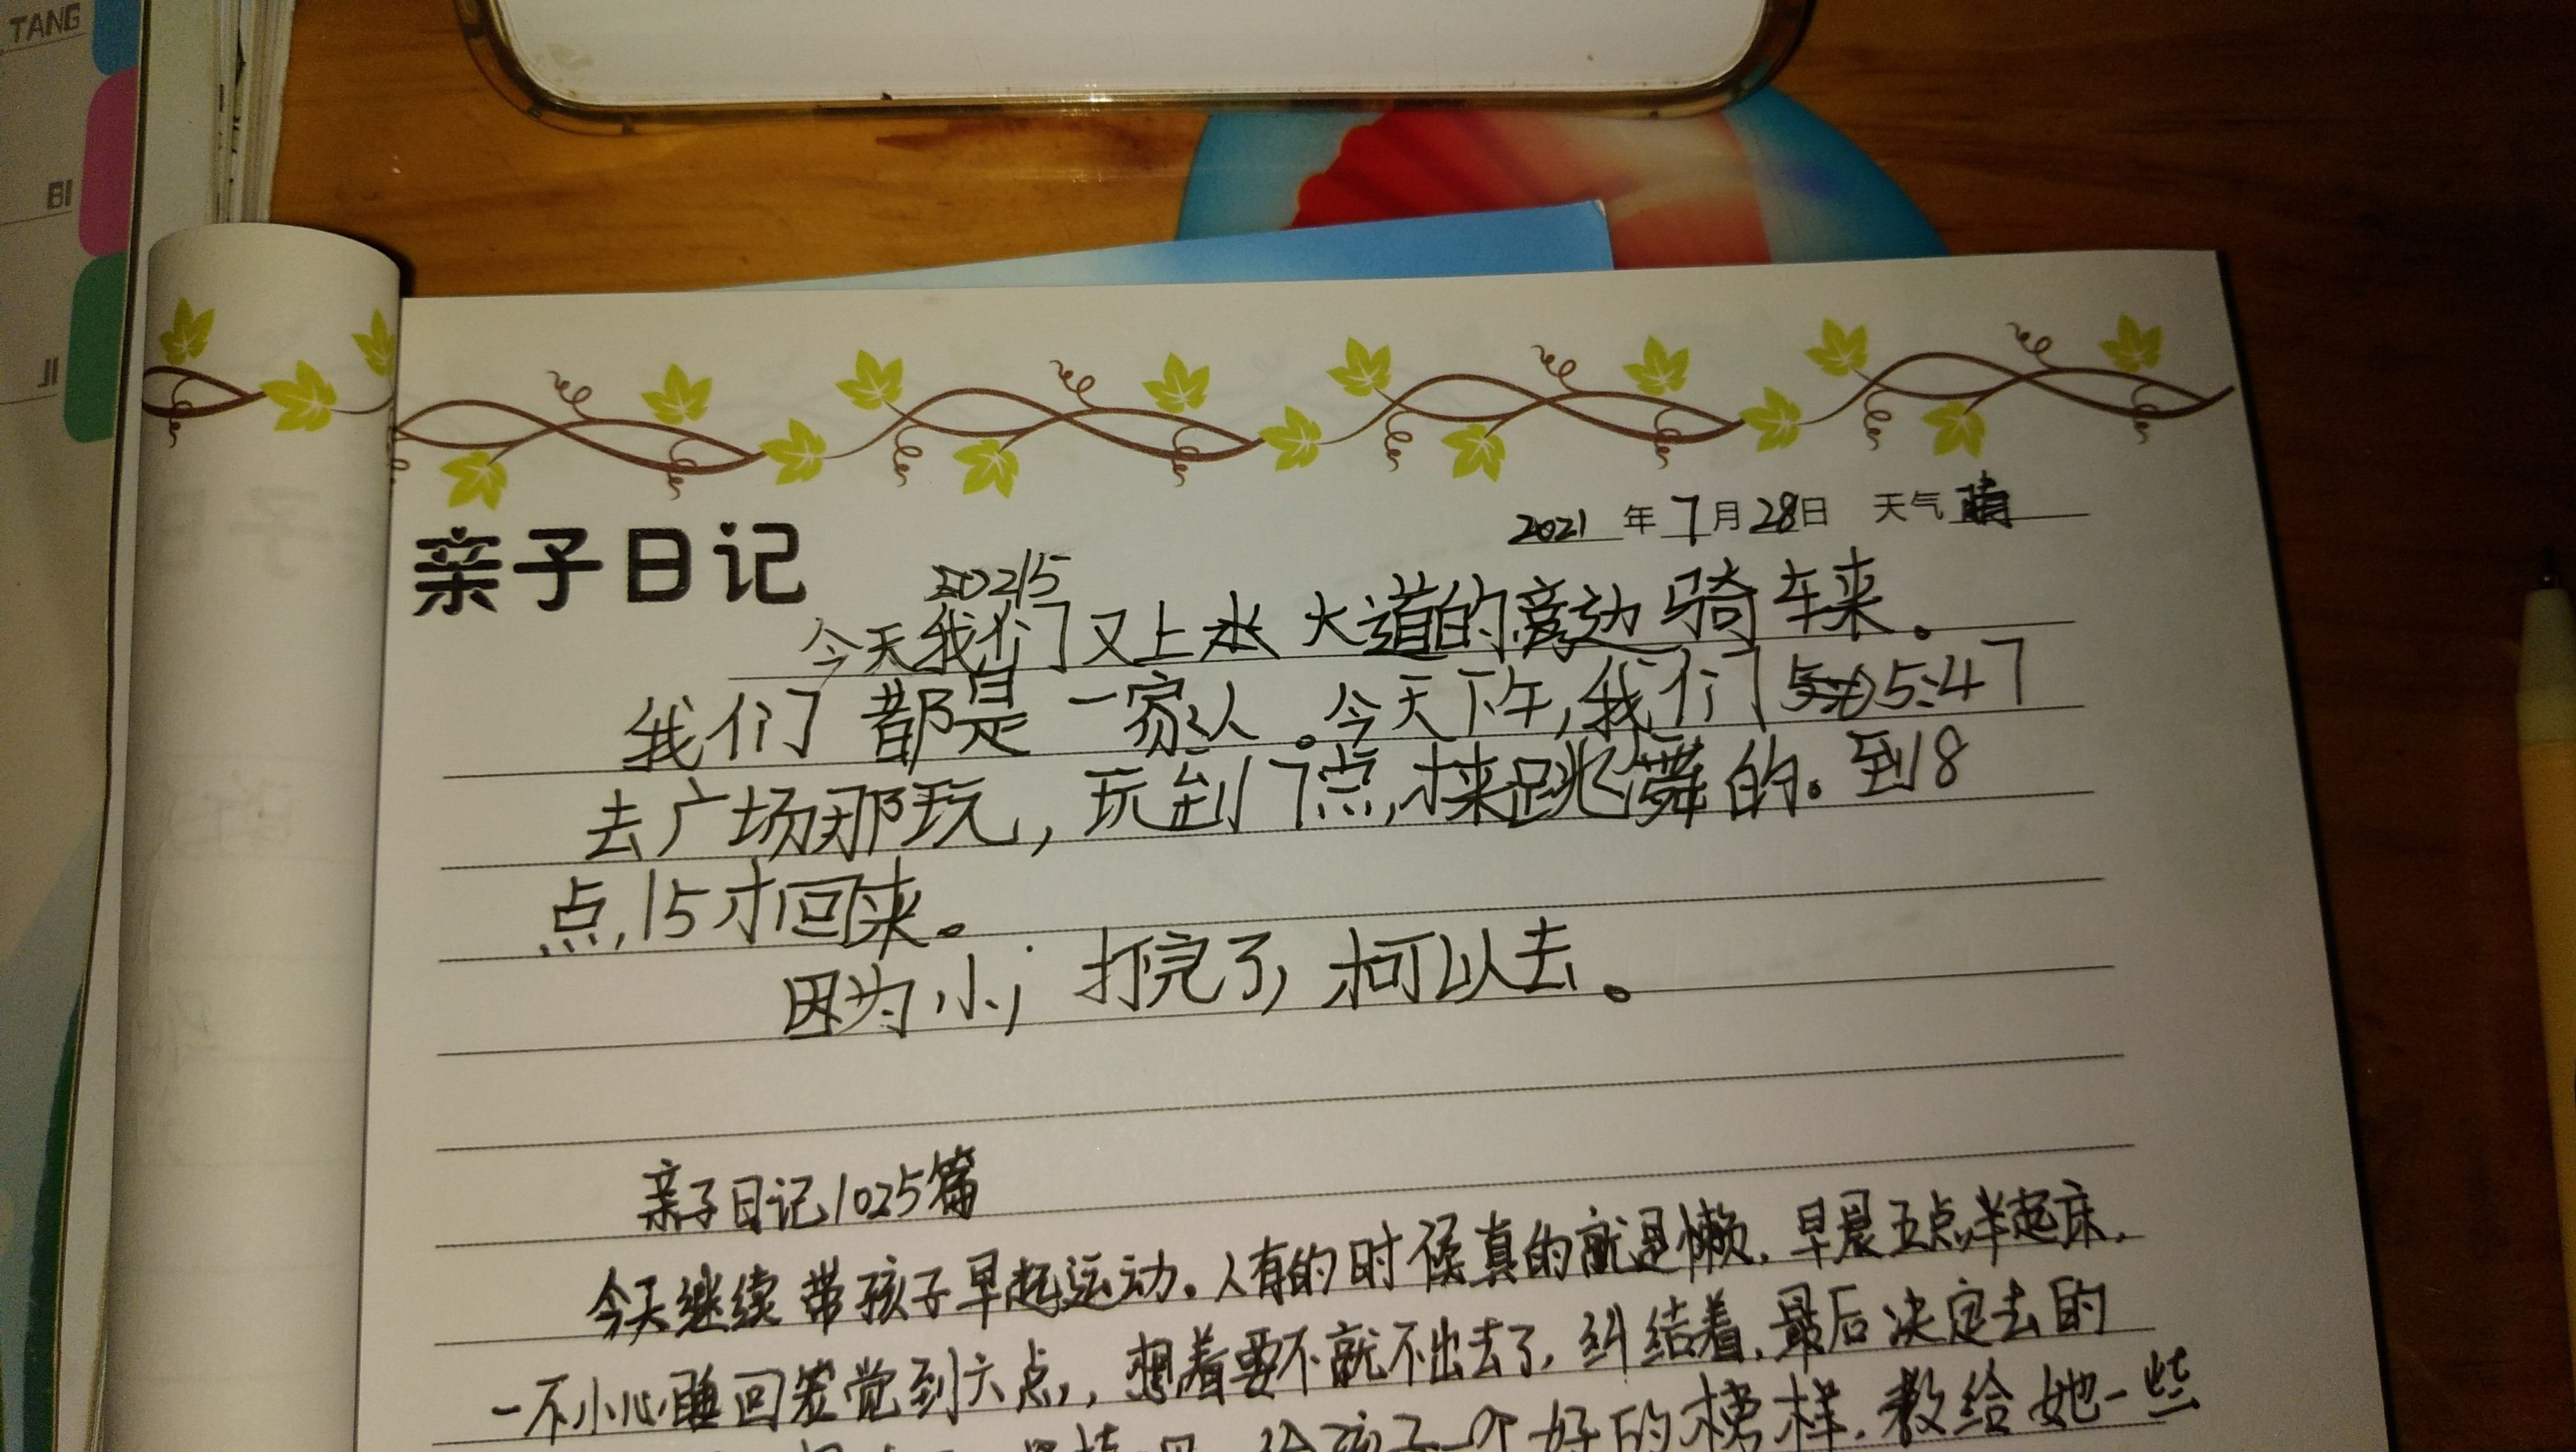 TANG
BI
JI
2021年7月28日 天气晴
亲子日记
今天我们又上水大道的旁边骑车来。
我们都是一家人。今天下午,我们5:47
去广场那玩,玩到7点,才来跳舞的。到8
点,15才回来。
因为小,打完了,才可以去。
亲子日记1025篇
今天继续带孩子早起运动.人有的时候真的就是懒.早晨五点半起床.
一不小心睡回笼觉到六点,,想着要不就不出去了.纠结着.最后决定去的
给孩子一个好的榜样.教给她一些